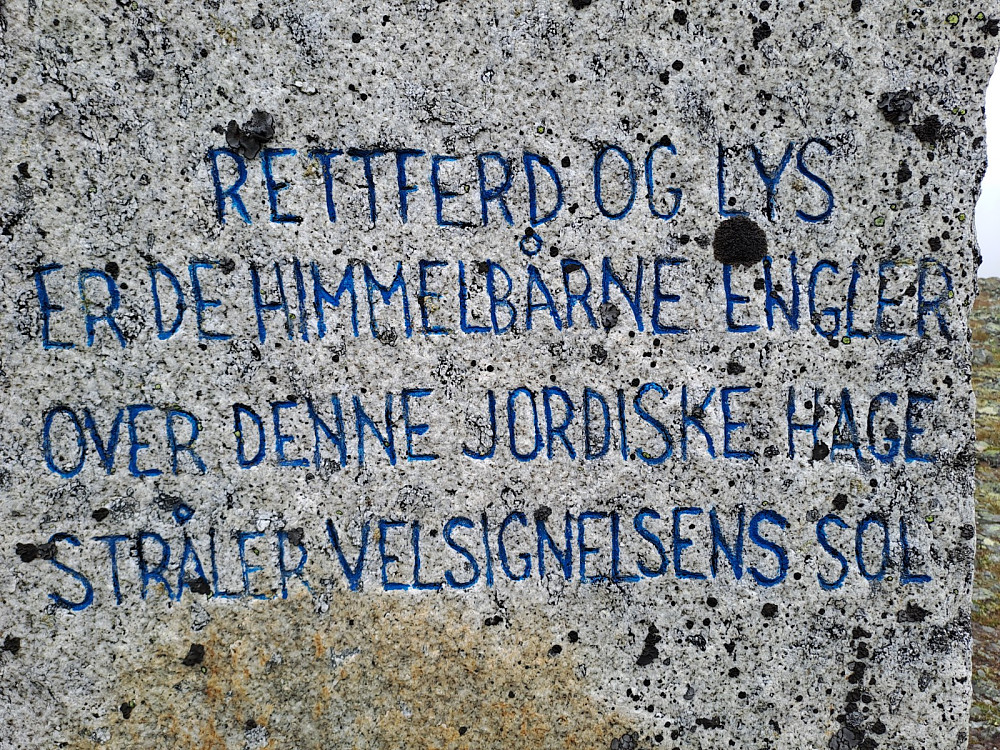 RETTFERD OG LYS
ER DE HIMMELBÅRNE ENGLER
OVER DENNE JORDISKE HAGE
STRÅLER VELSIGNELSENS SOL